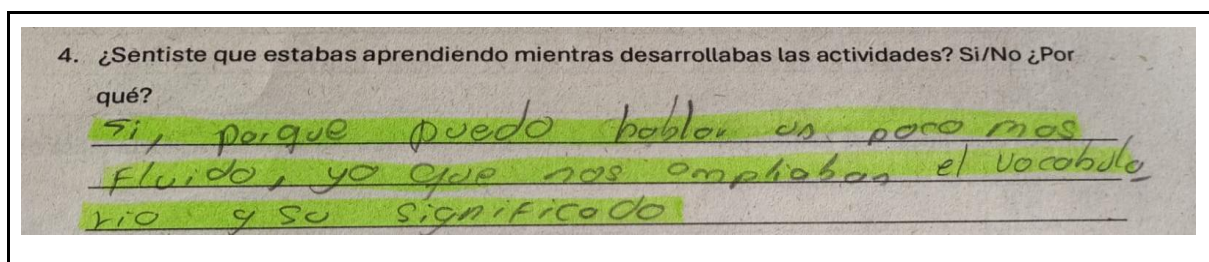 4. ¿Sentiste que estabas aprendiendo mientras desarrollabas las actividades? Si/No ¿Por
qué?
Si, porque puedo hablar un poco mas
Fluido, ya que nos ampliaban el vocabula
rio y su significado